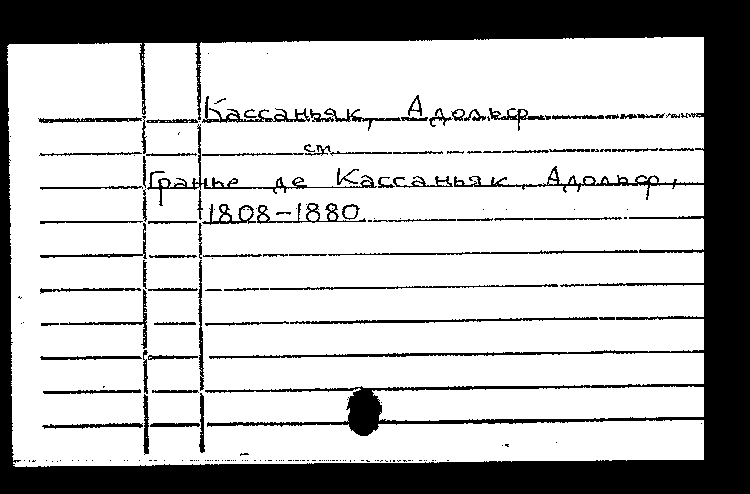 Кассаньяк, Адольф
см.
Гранье де Кассаньяк, Адольф,
1808-1880.